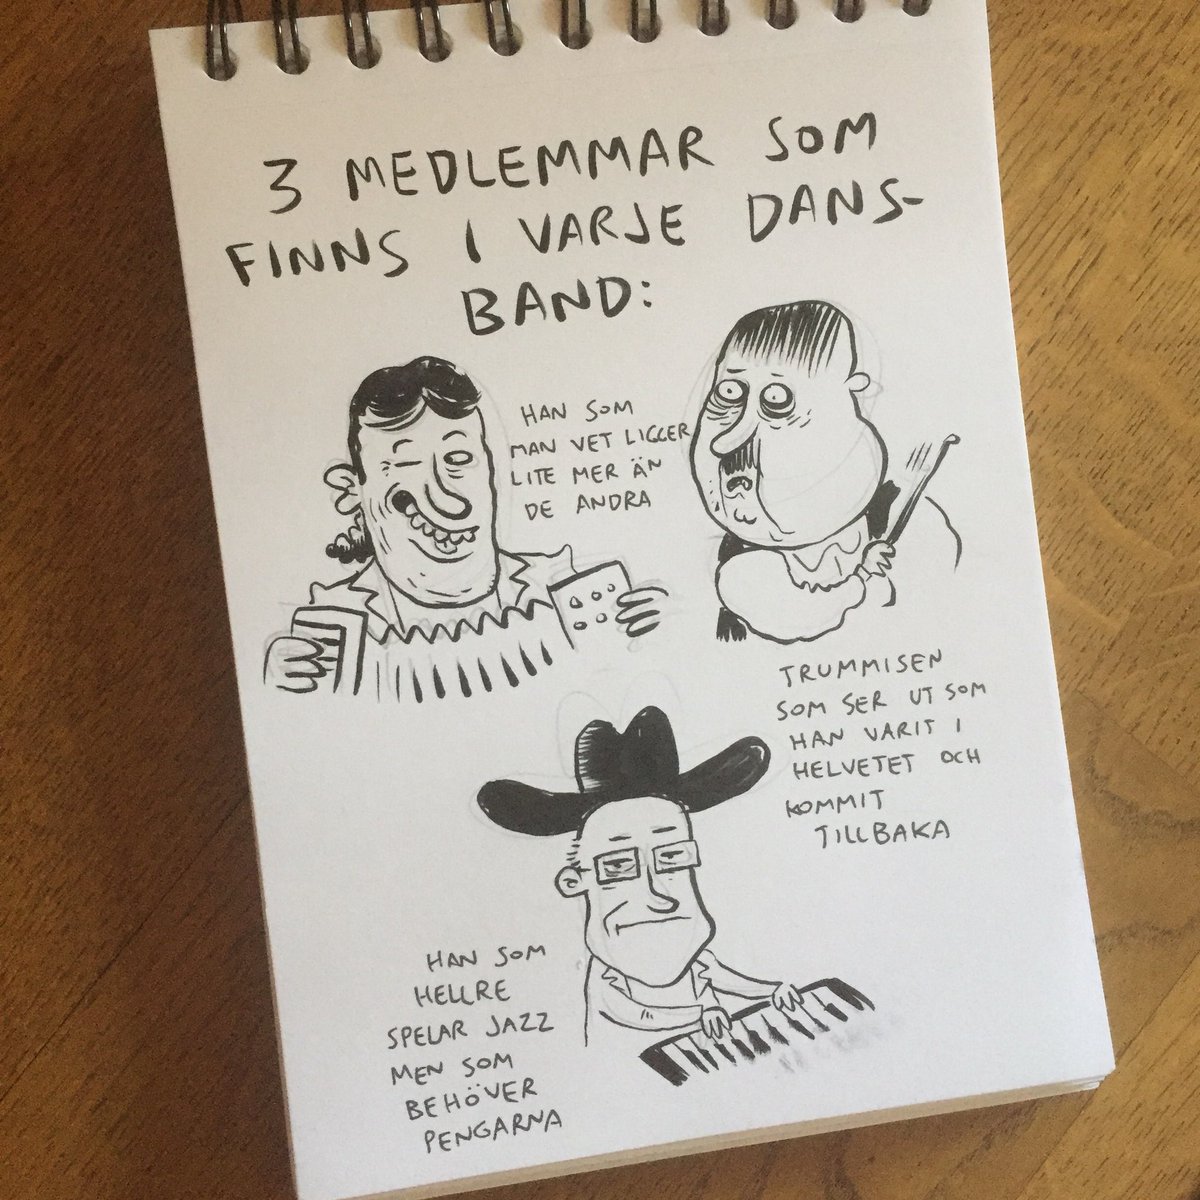 3 MEDLEMMAR SOM
FINNS I VARJE DANS-
BAND:
HAN SOM
MAN VET LIGGER
LITE MER ÄN
DE ANDRA
TRUMMISEN
SOM SER UT SOM
HAN VARIT I
HELVETET OCH
KOMMIT
TILLBAKA
HAN SOM
HELLRE
SPELAR JAZZ
MEN SOM
BEHÖVER
PENGARNA